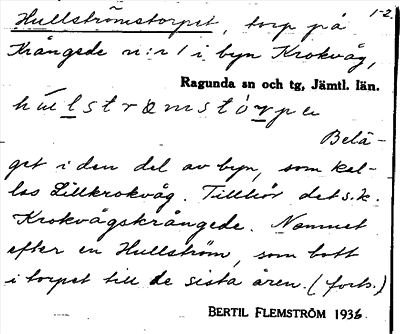 1-2.
Hullströmstorpet, torp på
Krångede n:r 1 i byn Krokvåg,
Ragunda sn och tg, Jämtl. län.
Belä-
get i den del av byn, som kal-
las Lillkrokvåg. Tillhör det s.k.
Krokvågskrångede. Namnet
efter en Hullström, som bott
i torpet till de sista åren. (forts.)
BERTIL FLEMSTRÖM 1936.